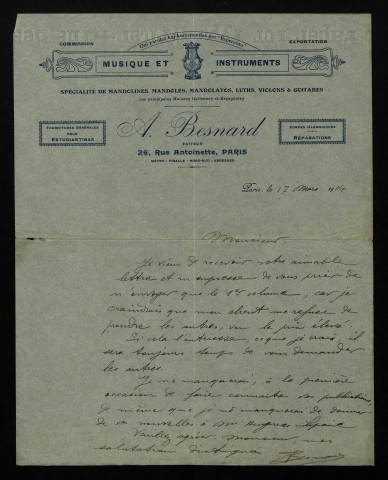 COMMISSION
EXPORTATION
MUSIQUE ET INSTRUMENTS
SPÉCIALITÉ DE MANDOLINES, MANDOLES, MANDOLATES, LUTHS, VIOLONS & GUITARES
des principales Maisons Italiennes et Espagnoles
FOURNITURES GÉNÉRALES
POUR
ESTUDIANTINAS
A. Besnard
ÉDITEUR
26, Rue Antoinette, PARIS
MÉTRO : PIGALLE - NORD-SUD : ABBESSES
CORDES HARMONIQUES
RÉPARATIONS
Paris, le 17 Mars 1914
Monsieur
Je viens de recevoir votre aimable
lettre et m'empresse de vous prier de
n'envoyer que le 1er volume, car je
craindrais que mon client me refuse de
prendre les autres, vu le prix élevé.
Si cela l'intéresse, ce que je crois, il
sera toujours temps de vous demander
les autres.
Je ne manquerai, à la première
occasion de faire connaître vos publications
de même que je ne manquerai de donner
de vos nouvelles à Mr
Veuillez agréer, Monsieur, mes
salutations distinguées
Besnard